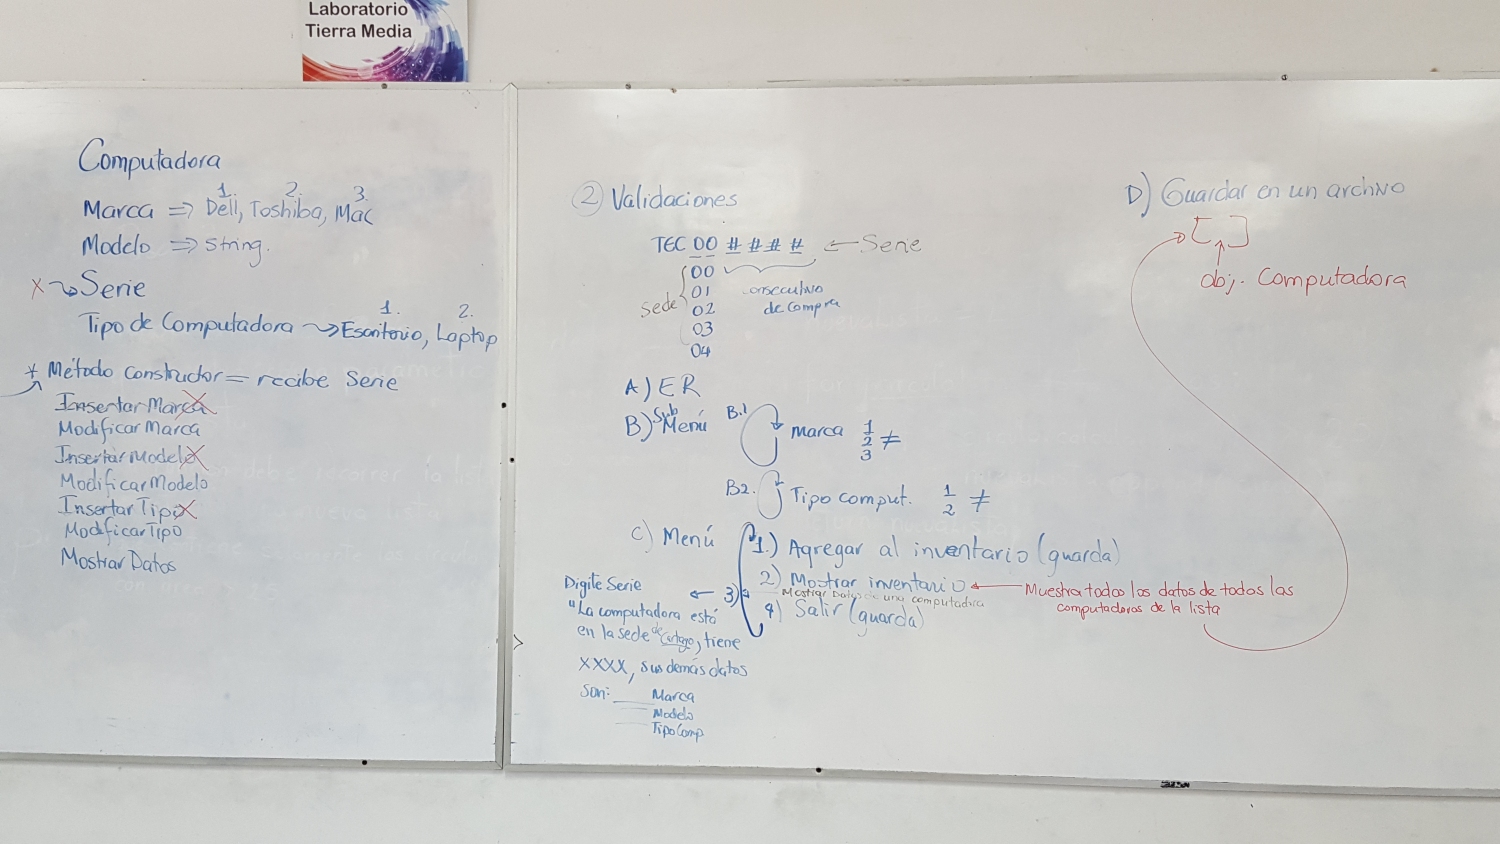 Laboratorio
Tierra Media
Computadora
1. 2. 3.
Marca => Dell, Toshiba, Mac
Modelo => String.
X Serie
1. 2.
Tipo de Computadora Escritorio, Laptop
* Método Constructor = recibe Serie
Insertar Marca
Modificar Marca
Insertar Modelo
Modificar Modelo
Insertar Tipo
Modificar Tipo
Mostrar Datos
2 Validaciones
TEC 00 # # # # ← Serie
00
01
02
03
04
Sede
consecutivo
de compra
A) E R
B) Sub Menú
B.1 marca 1 2 3 ≠
B2. Tipo comput. 1 2 ≠
C) Menú
1.) Agregar al inventario (guarda)
2) Mostrar inventario ← Muestra todos los datos de todos las
computadoras de la lista
3) Mostrar Datos de una computadora
4) Salir (guarda)
Digite Serie ←
"La computadora está
en la sede de Cartago, tiene
XXXX, sus demás datos
son: Marca
Modelo
Tipo Comp
D) Guardar en un archivo
[ ]
obj. Computadora